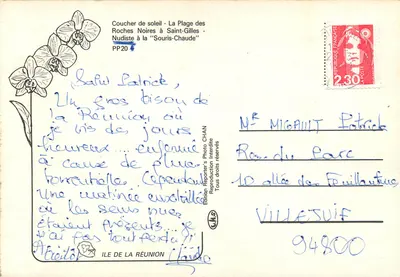 Coucher de soleil - La Plage des
Roches Noires à Saint-Gilles -
Nudiste à la "Souris-Chaude"
PP20
2,30
Salut Patrick,
Un gros bison de
la Réunion où
je vis des jours
heureux... enfermé
à cause de pluies
torrentielles. Cependant
une matinée ensoleillée
où les seins nus
étaient présents, je
n'ai pas tout perdu !
A bientôt
Editeur Reporter's Photo CHAN
Reproduction interdite
Droits réservés
ILE DE LA RÉUNION
Mr MIGAULT Patrick
Res. du Parc
10 allée des Fouillantines
VILLEJUIF
94800